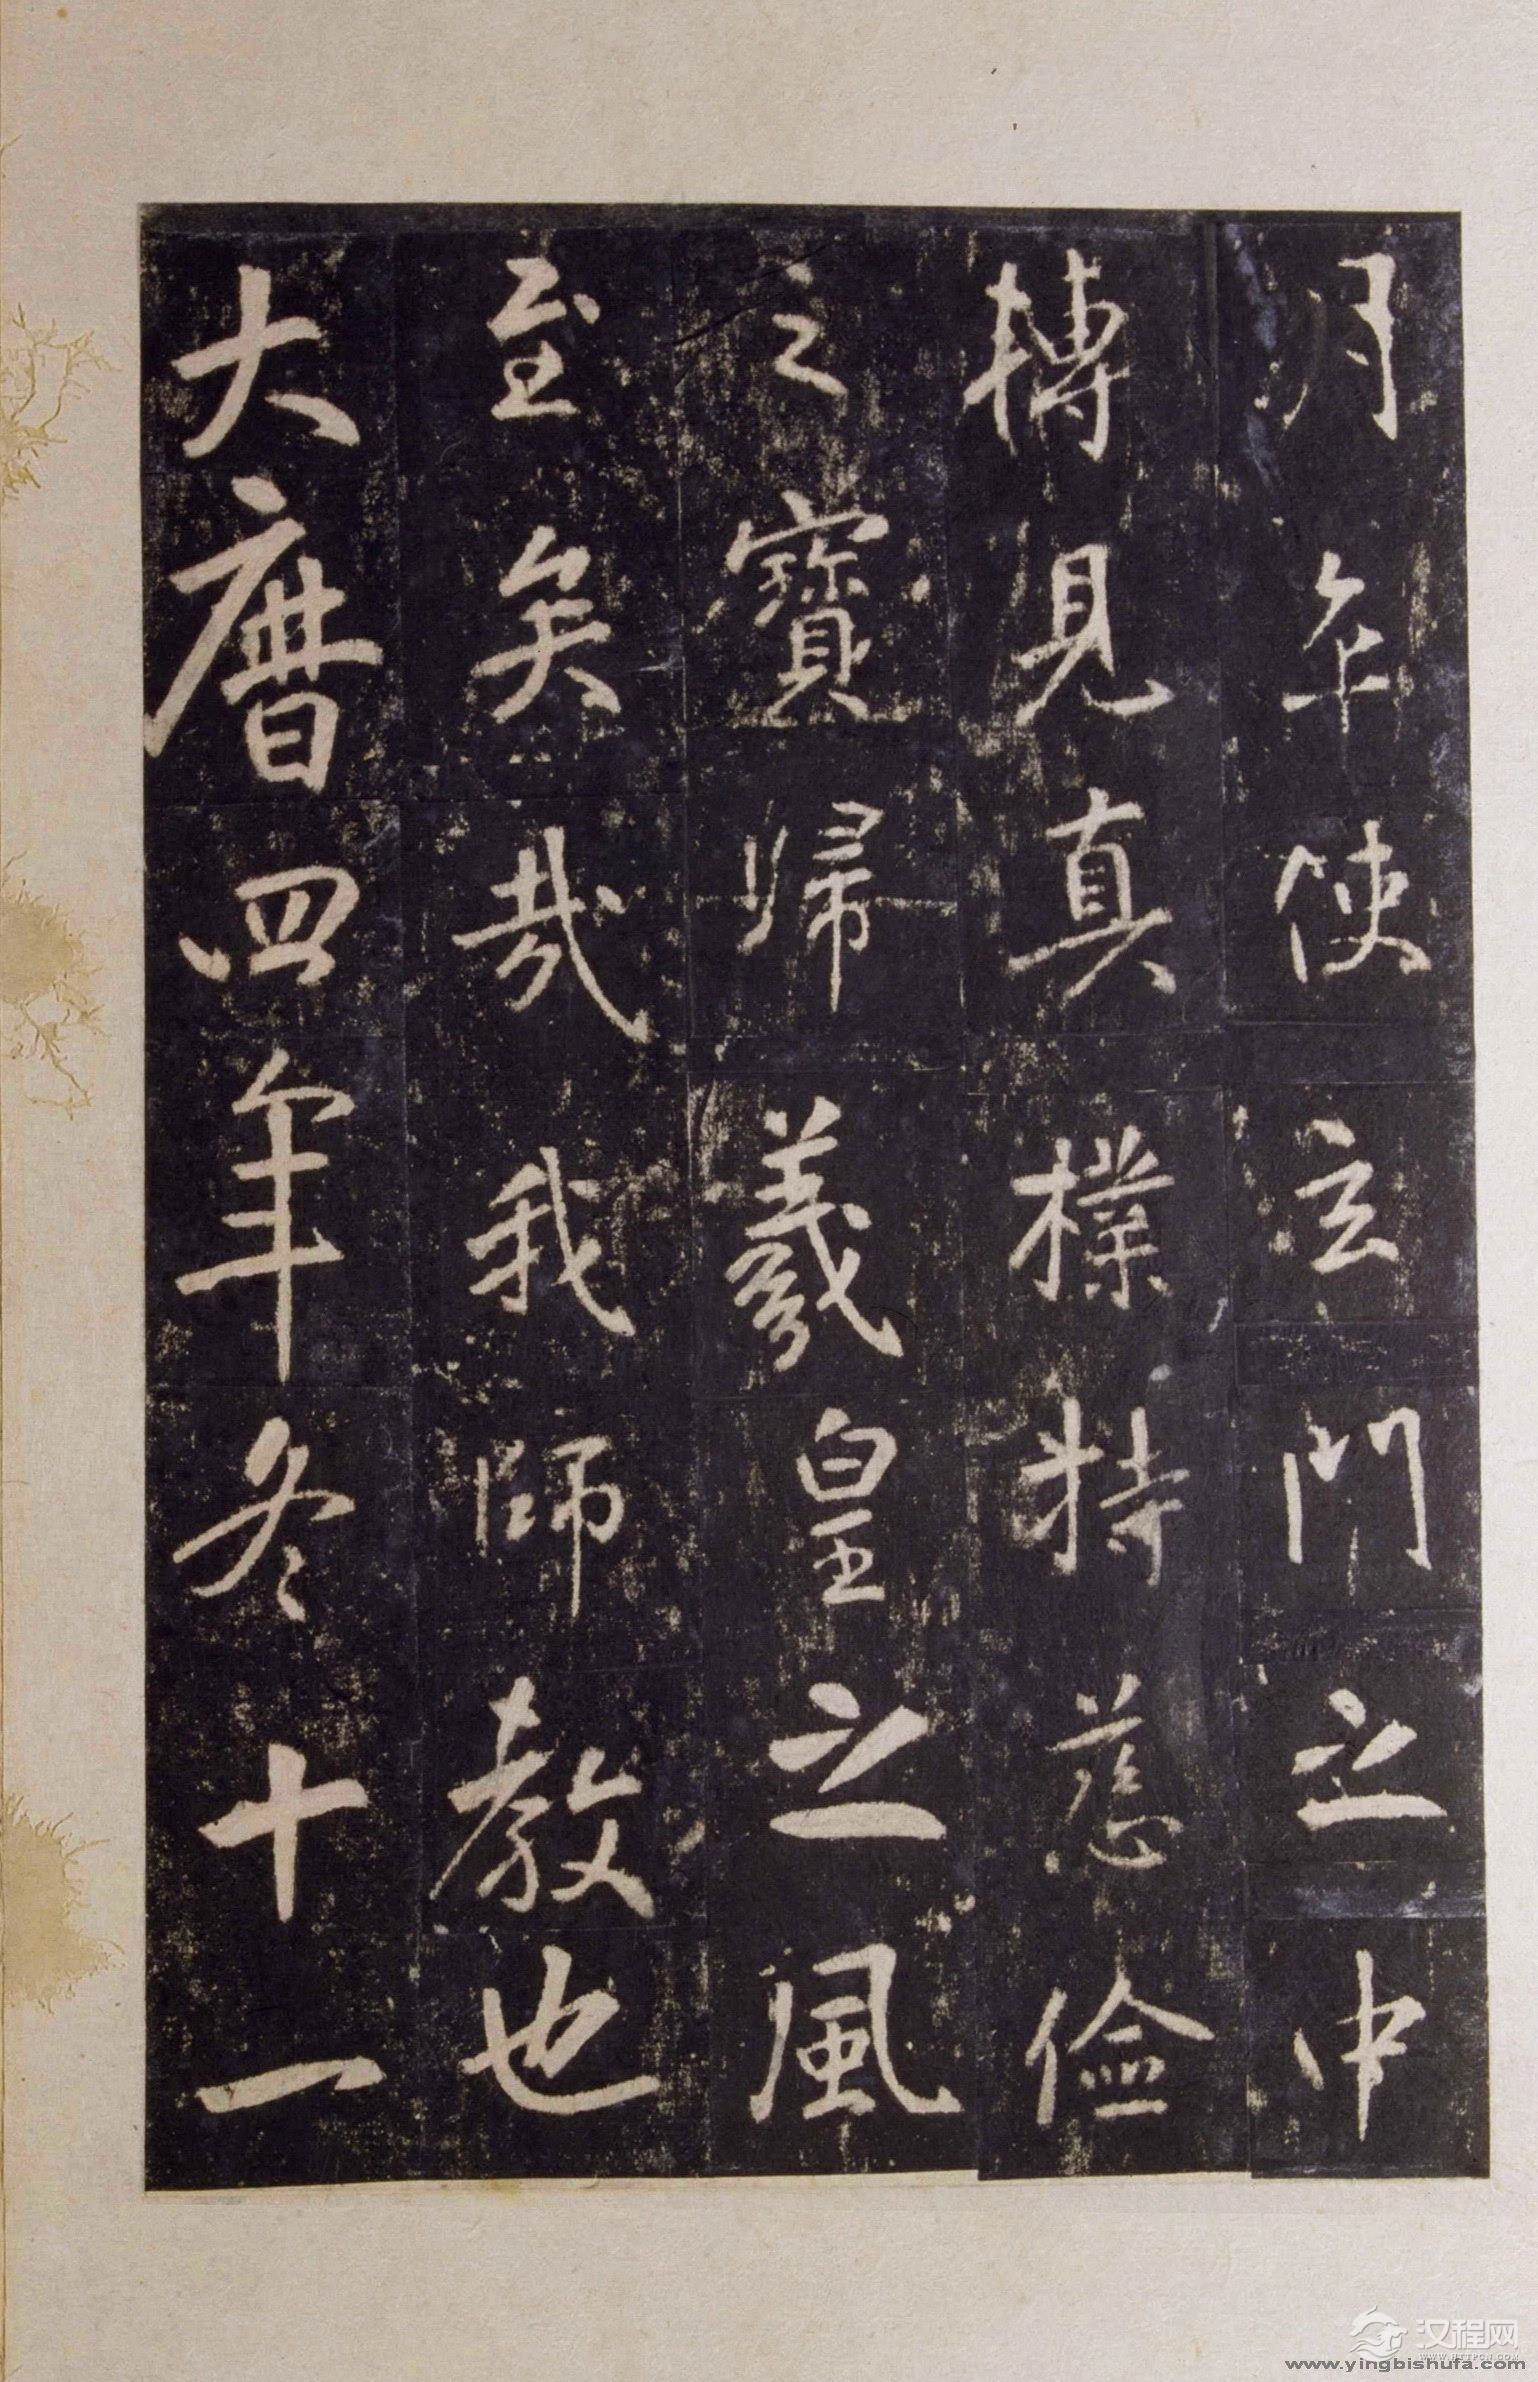 月乎使玄門之中
轉見真樸持慈儉
之寶歸羲皇之風
至矣哉我師教也
大曆四年冬十一
汉程网
WWW.HTTPCN.COM
www.yingbishufa.com